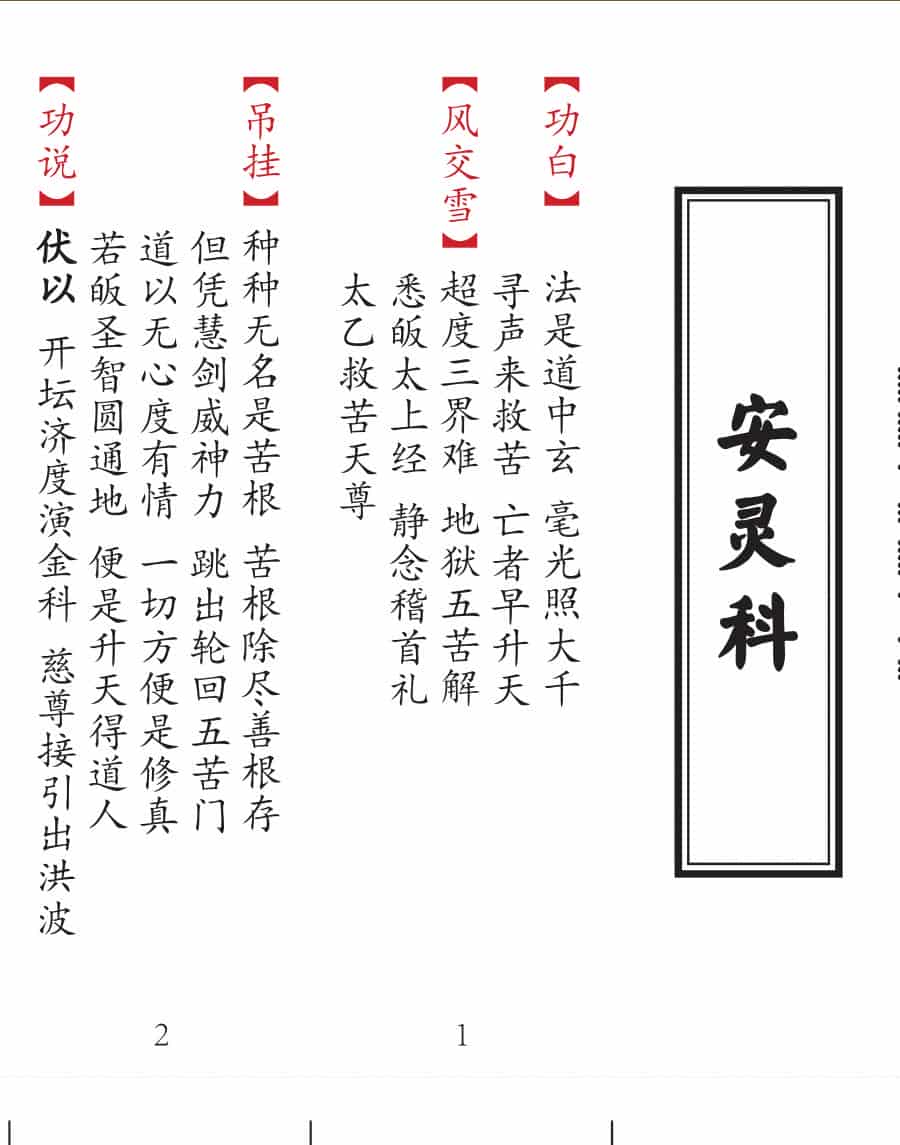 安灵科
【功白】
法是道中玄 毫光照大千
寻声来救苦 亡者早升天
【风交雪】
超度三界难 地狱五苦解
悉皈太上经 静念稽首礼
太乙救苦天尊
1
【吊挂】
种种无名是苦根 苦根除尽善根存
但凭慧剑威神力 跳出轮回五苦门
道以无心度有情 一切方便是修真
若皈圣智圆通地 便是升天得道人
【功说】
伏以 开坛济度演金科 慈尊接引出洪波
2